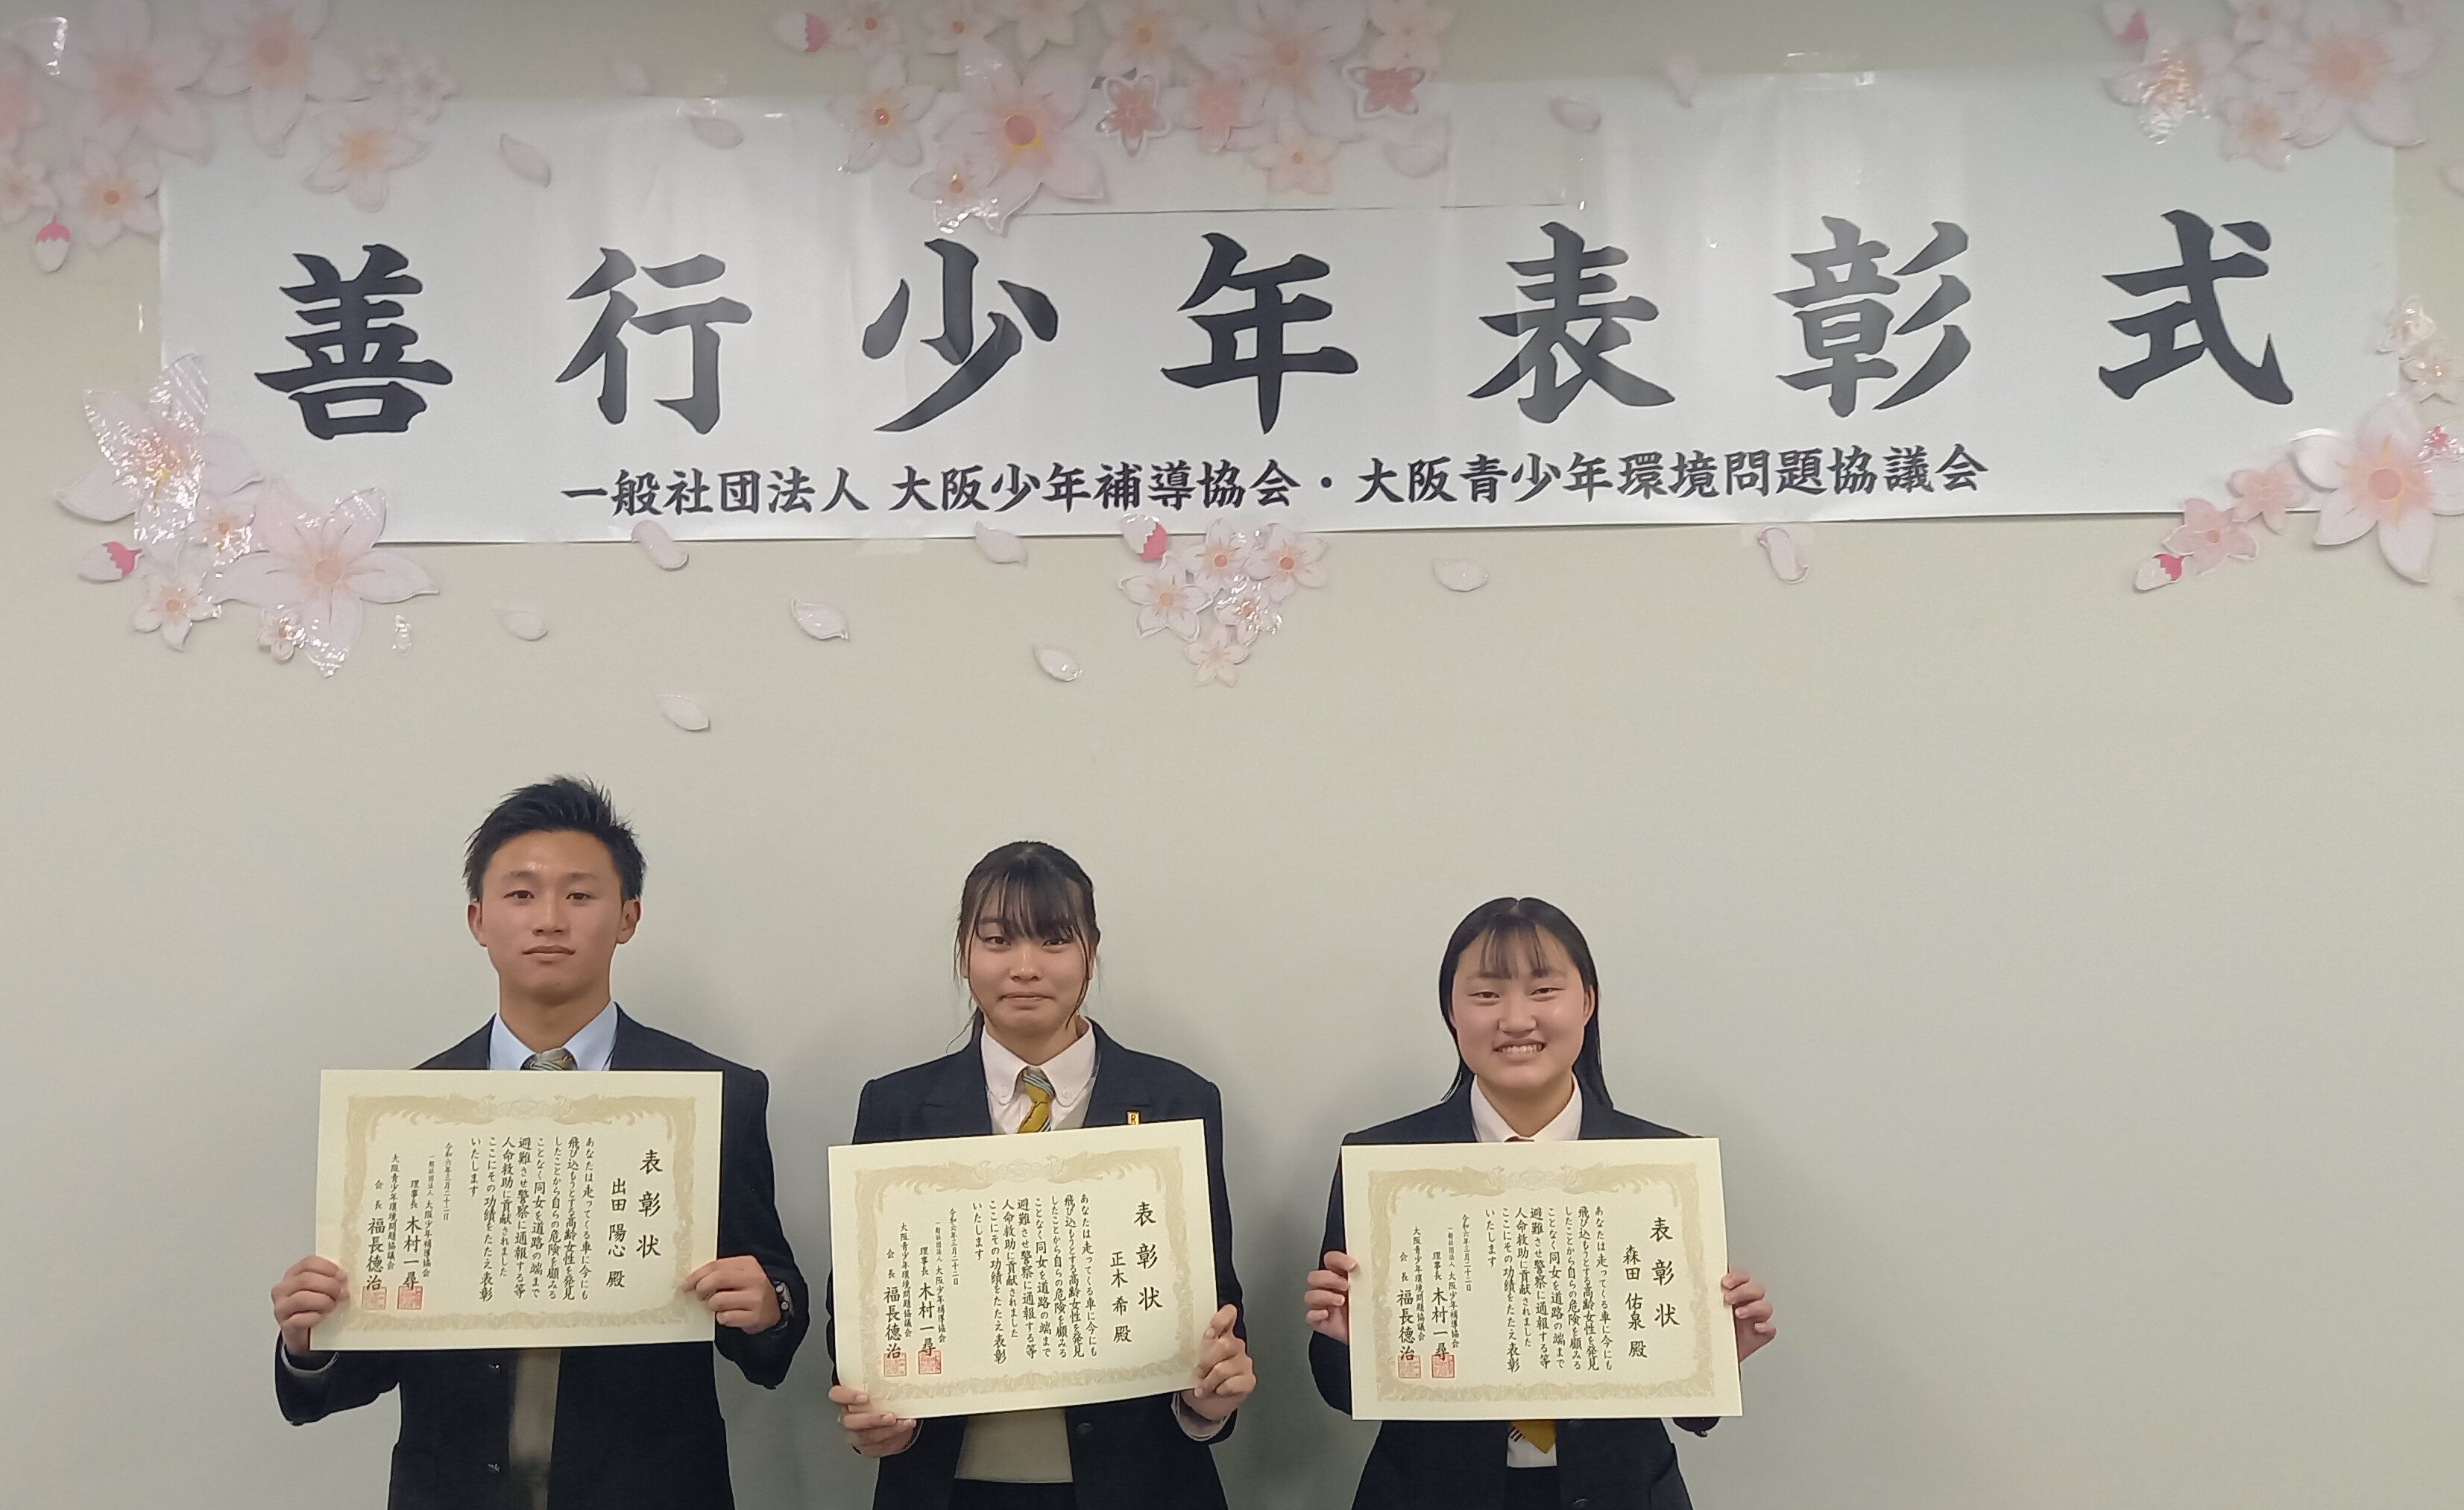 善行少年表彰式
一般社団法人 大阪少年補導協会・大阪青少年環境問題協議会
表彰状
出田 陽心 殿
あなたは走ってくる車に今にも
飛び込もうとする高齢女性を発見
したことから自らの危険を顧みる
ことなく同女を道路の端まで
避難させ警察に通報する等
人命救助に貢献されました
ここにその功績をたたえ表彰
いたします
令和六年三月二十二日
一般社団法人 大阪少年補導協会
理事長 木村一尋
大阪青少年環境問題協議会
会長 福長德治
表彰状
正木 希 殿
あなたは走ってくる車に今にも
飛び込もうとする高齢女性を発見
したことから自らの危険を顧みる
ことなく同女を道路の端まで
避難させ警察に通報する等
人命救助に貢献されました
ここにその功績をたたえ表彰
いたします
令和六年三月二十二日
一般社団法人 大阪少年補導協会
理事長 木村一尋
大阪青少年環境問題協議会
会長 福長德治
表彰状
森田 佑泉 殿
あなたは走ってくる車に今にも
飛び込もうとする高齢女性を発見
したことから自らの危険を顧みる
ことなく同女を道路の端まで
避難させ警察に通報する等
人命救助に貢献されました
ここにその功績をたたえ表彰
いたします
令和六年三月二十二日
一般社団法人 大阪少年補導協会
理事長 木村一尋
大阪青少年環境問題協議会
会長 福長德治